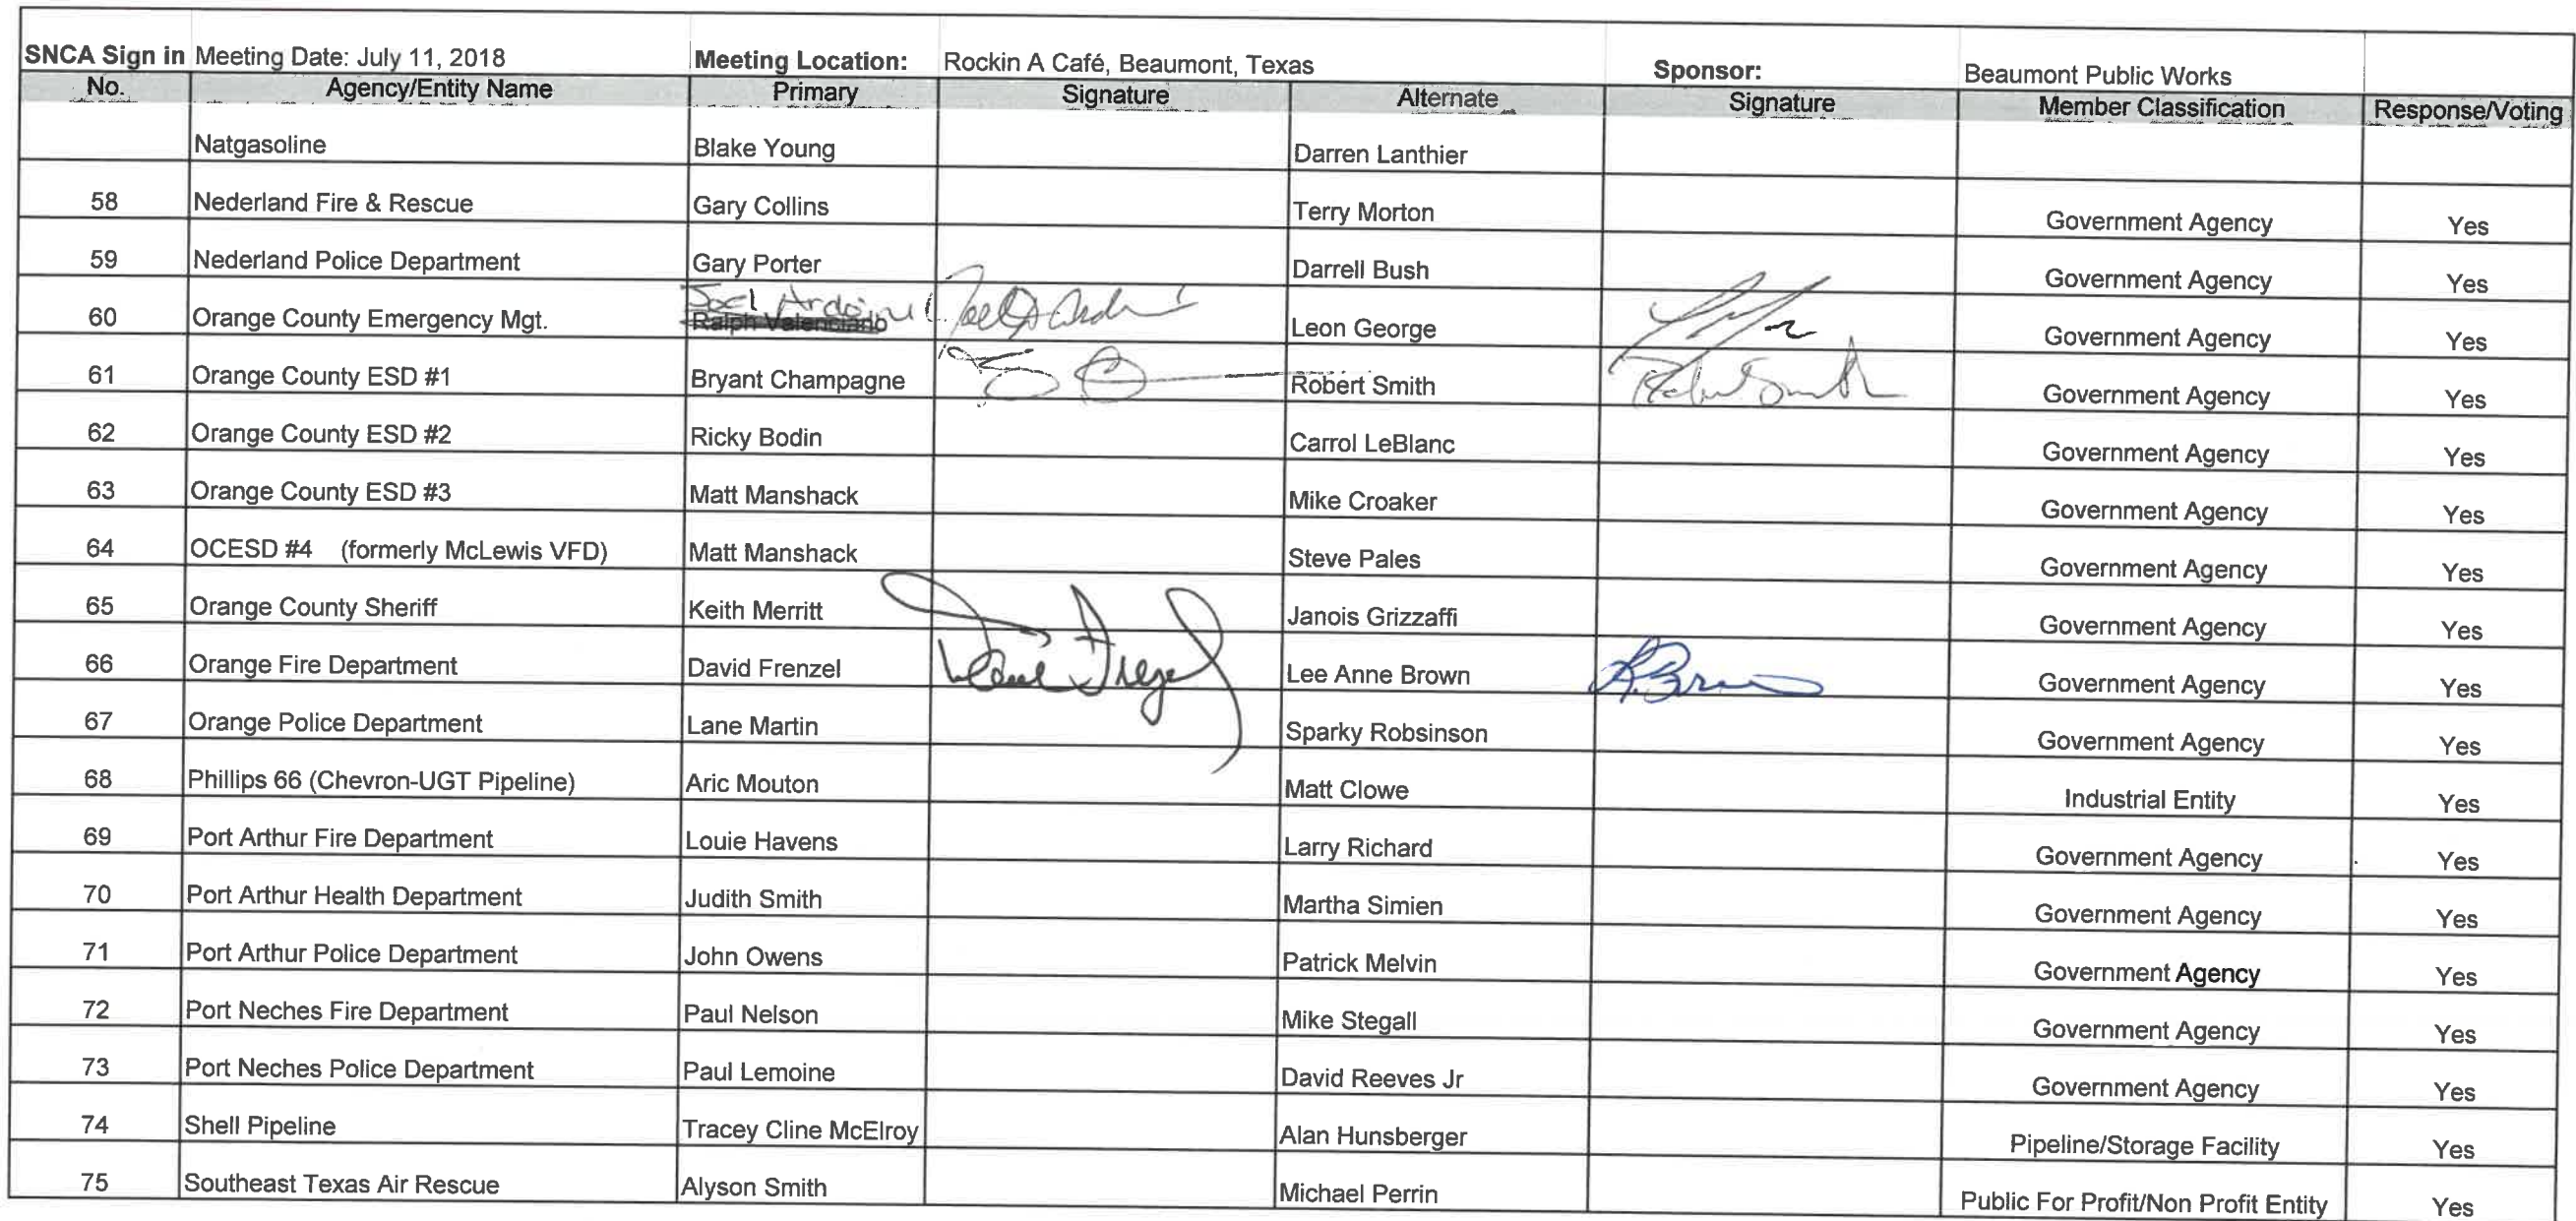 SNCA Sign in Meeting Date: July 11, 2018 Meeting Location: Rockin A Café, Beaumont, Texas Sponsor: Beaumont Public Works
No. Agency/Entity Name Primary Signature Alternate Signature Member Classification Response/Voting
Natgasoline Blake Young Darren Lanthier
58 Nederland Fire & Rescue Gary Collins Terry Morton Government Agency Yes
59 Nederland Police Department Gary Porter Darrell Bush Government Agency Yes
60 Orange County Emergency Mgt. Joel Ardoin Ralph Valenciano Leon George Government Agency Yes
61 Orange County ESD #1 Bryant Champagne Robert Smith Robert Smith Government Agency Yes
62 Orange County ESD #2 Ricky Bodin Carrol LeBlanc Government Agency Yes
63 Orange County ESD #3 Matt Manshack Mike Croaker Government Agency Yes
64 OCESD #4 (formerly McLewis VFD) Matt Manshack Steve Pales Government Agency Yes
65 Orange County Sheriff Keith Merritt Janois Grizzaffi Government Agency Yes
66 Orange Fire Department David Frenzel Lee Anne Brown Government Agency Yes
67 Orange Police Department Lane Martin Sparky Robsinson Government Agency Yes
68 Phillips 66 (Chevron-UGT Pipeline) Aric Mouton Matt Clowe Industrial Entity Yes
69 Port Arthur Fire Department Louie Havens Larry Richard Government Agency Yes
70 Port Arthur Health Department Judith Smith Martha Simien Government Agency Yes
71 Port Arthur Police Department John Owens Patrick Melvin Government Agency Yes
72 Port Neches Fire Department Paul Nelson Mike Stegall Government Agency Yes
73 Port Neches Police Department Paul Lemoine David Reeves Jr Government Agency Yes
74 Shell Pipeline Tracey Cline McElroy Alan Hunsberger Pipeline/Storage Facility Yes
75 Southeast Texas Air Rescue Alyson Smith Michael Perrin Public For Profit/Non Profit Entity Yes